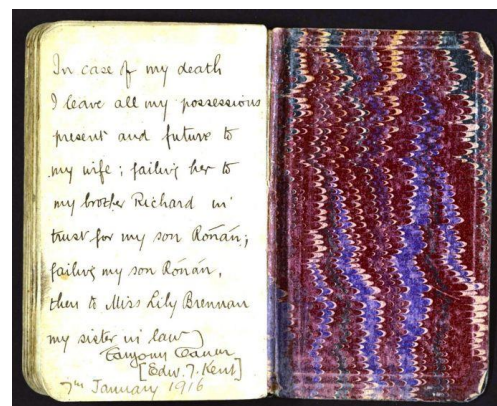 In case of my death
I leave all my possessions
present and future to
my wife; failing her to
my brother Richard in
trust for my son Rónán;
failing my son Rónán,
then to Miss Lily Brennan
my sister in law
[Edw. T. Kent]
7th January 1916